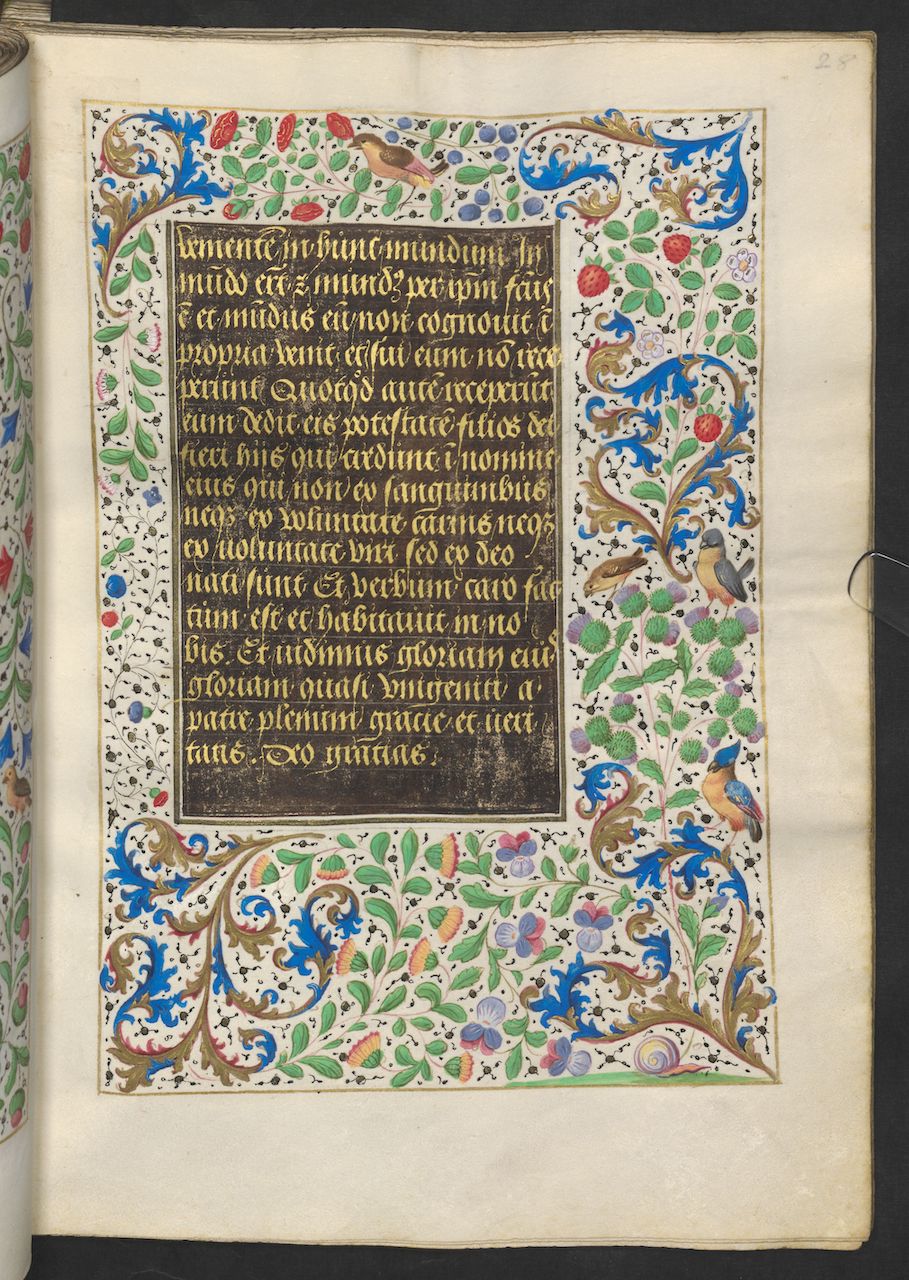 28
venientē in hunc mundum In
mūdo erat ⁊ mundꝫ per ipm̄ fcūs
ē et mūdus eū non cognouit ī
propria venit et sui eum nō rece
perunt Quotqd̓ autē receperūt
eum dedit eis potestatē filios dei
fieri hiis qui credunt ī nomine
eius qui non ex sanguinibus
neqꝫ ex voluntate carnis neqꝫ
ex uoluntate viri sed ex deo
nati sunt Et verbum caro fac
tum est et habitauit in no
bis. Et uidimus gloriam eius
gloriam quasi vnigeniti a
patre plenum gracie et ueri
tatis. Deo gratias